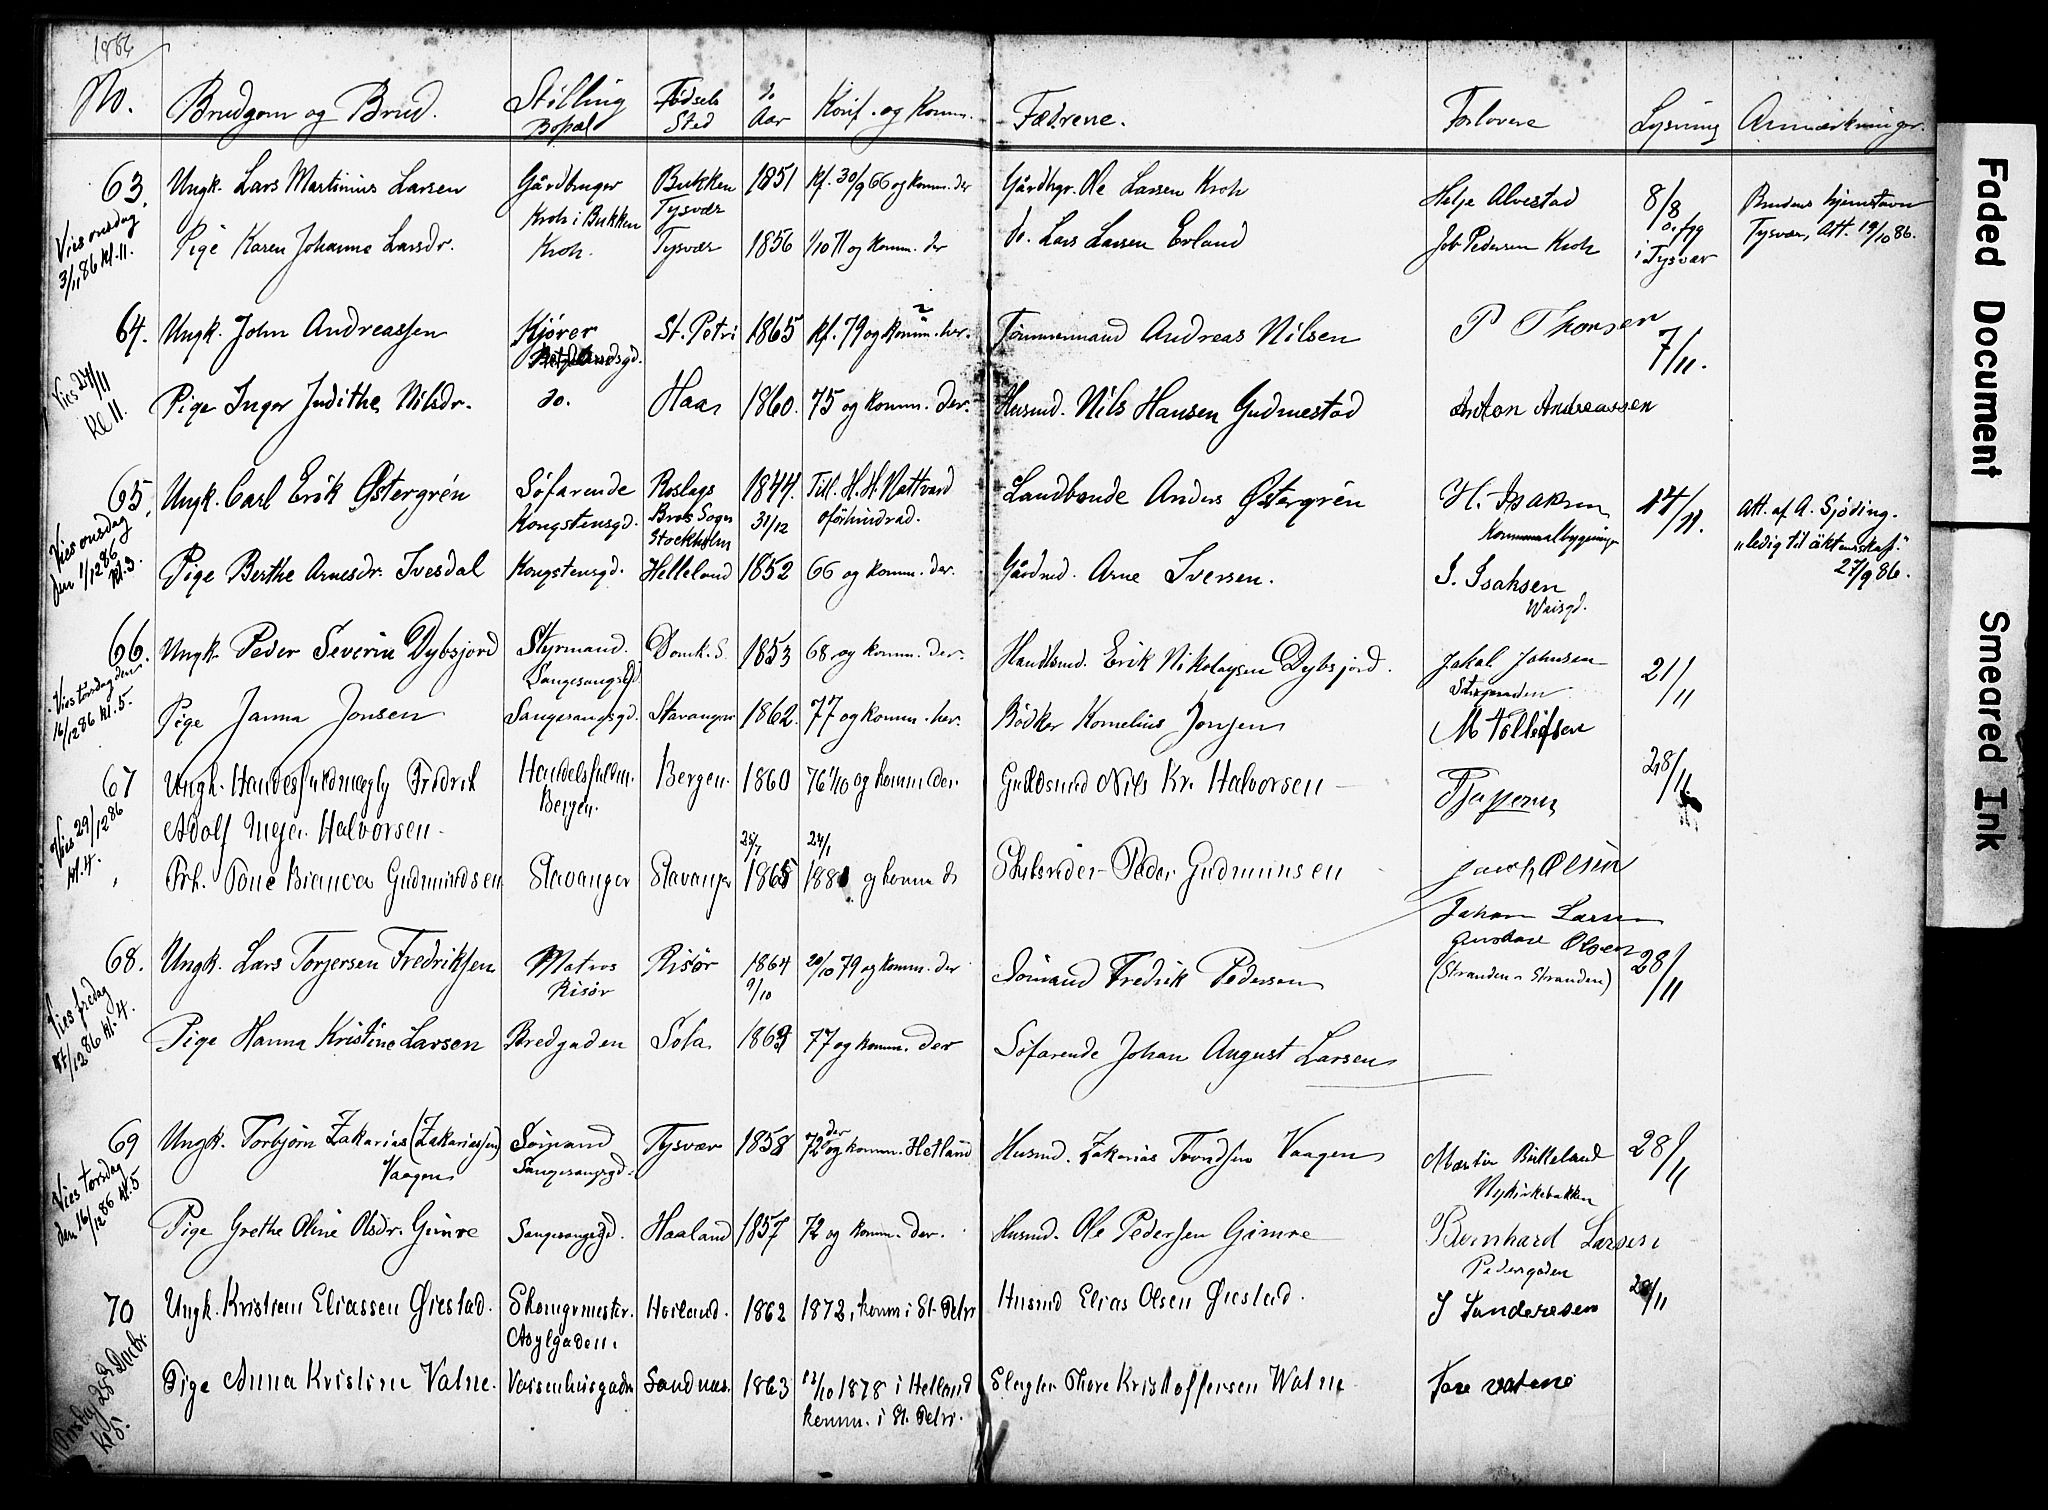 1886
No. Brudgom og Brud. Stilling Bopæl Fødsels Sted do Aar Konf. og Komm. Fædrene. Forlovere Lysning Anmærkninger.
63. Ungk. Lars Martinius Larsen Gårdbruger Bukken 1851 kf. 30/9 66 og komm. der Gårdbgr. Ole Larsen Kroh Helje Alvestad 8/8 Brudens hjemstavn
Vies onsdag 3/11 86 kl. 11. Kroh i Bukken Tysvær o. fg. Tysvær, Att. 19/10 86.
Pige Karen Johanne Larsdr. Kroh. Tysvær 1856 1/10 71 og komm. der do. Lars Larsen Erland Job Pedersen Kroh i Tysvær
64. Ungk. John Andreassen Kjører St. Petri 1865 kf. 79 og komm. her. Tømmermand Andreas Nilsen P Thomsen 7/11.
Vies 24/11 kl 11.
Pige Inger Judithe Nilsdr. do. Haa 1860. 75 og komm. der. Husmd. Nils Hansen Gudmestad Anton Andreassen
65. Ungk. Carl Erik Østergrén Søfarende Roslags 1844. Till. H. H. Nattvard Landbonde Anders Østergrén H. Isaksen 14/11. Att. af A. Sjöding.
Vies onsdag den 1/12 86 kl. 3. Kongstensgd. Bros Sogn Stockholm 31/12 oförhindrad. "ledig til äktenskaf."
27/9 86.
Pige Berthe Arnesdr. Ivesdal Kongstensgd. Helleland 1852 66 og komm. der. Gårdmd. Arne Iversen. I. Isaksen
Waisgd.
66. Ungk. Peder Severin Dybsjord Styrmand. Domk. S. 1853 68 og komm. der. Handlsmd. Erik Nikolaysen Dybsjord. Jakob Johnsen 21/11
Vies torsdag den 16/12 86 kl. 5. Sangesangsgd.
Pige Janna Jonsen Sangesangsgd. Stavanger 1862. 77 og komm. her. Bødker Kornelius Jonsen M Tollefsen
67 Ungk. Handelsfuldmægtg Fredrik Handelsfullm. Bergen. 1860 76 1/10 og komm der Guldsmed Nils Kr. Halvorsen 28/11
Vies 29/12 86 kl. 4. Adolf Meyer Halvorsen. Bergen.
25/7 24/1
Prk. Tone Bianca Gudmundsen Stavanger Stavanger 1865 188 og komm d Skibsreder Peder Gudmunsen Jacob Olsen
68. Ungk. Lars Torjersen Fredriksen Matros Risør 1864 20/10 79 og komm. der Sømand Fredrik Pedersen Johan Larsen
Vies fredag 17/12 86 kl. 4. Risør 9/10 Gustav Olsen 28/11
(Stranden - Stranden)
Pige Hanna Kristine Larsen Bredgaden Sola 1863 77 og komm. der Søfarende Johan August Larsen
69 Ungk. Torbjørn Zakarias (Zakariassen) Sømand Tysvær 1858 72 der og komm. Hetland Husmd. Zakarias Trondsen Vaagen Martin Birkeland 28/11
Vies torsdag den 16/12 86 kl. 5 Vaagen Sangesangsgd. Nykirkebakken
Pige Grethe Oline Olsdr. Gimre Sangesangsgd. Haaland 1857 72 og komm. der. Husmd. Ole Pedersen Gimre Bernhard Larsen
Pedersgaden
70 Ungk. Kristian Eliassen Øiestad. Skomgrmester. Hoiland. 1862 1872, komm i St. Petri Husmd Elias Olsen Øiestad. I Sanderesen 28/11
Tirsdag 28 Decbr. kl 5. Asylgaden.
Pige Anna Kristine Valne. Vaisenhusgadn Sandnæs. 1863 13/10 1878 i Hetland Slagter Thore Kristoffersen Walne Tore valene
komm. i St. Petri.
Faded Document
Smeared Ink